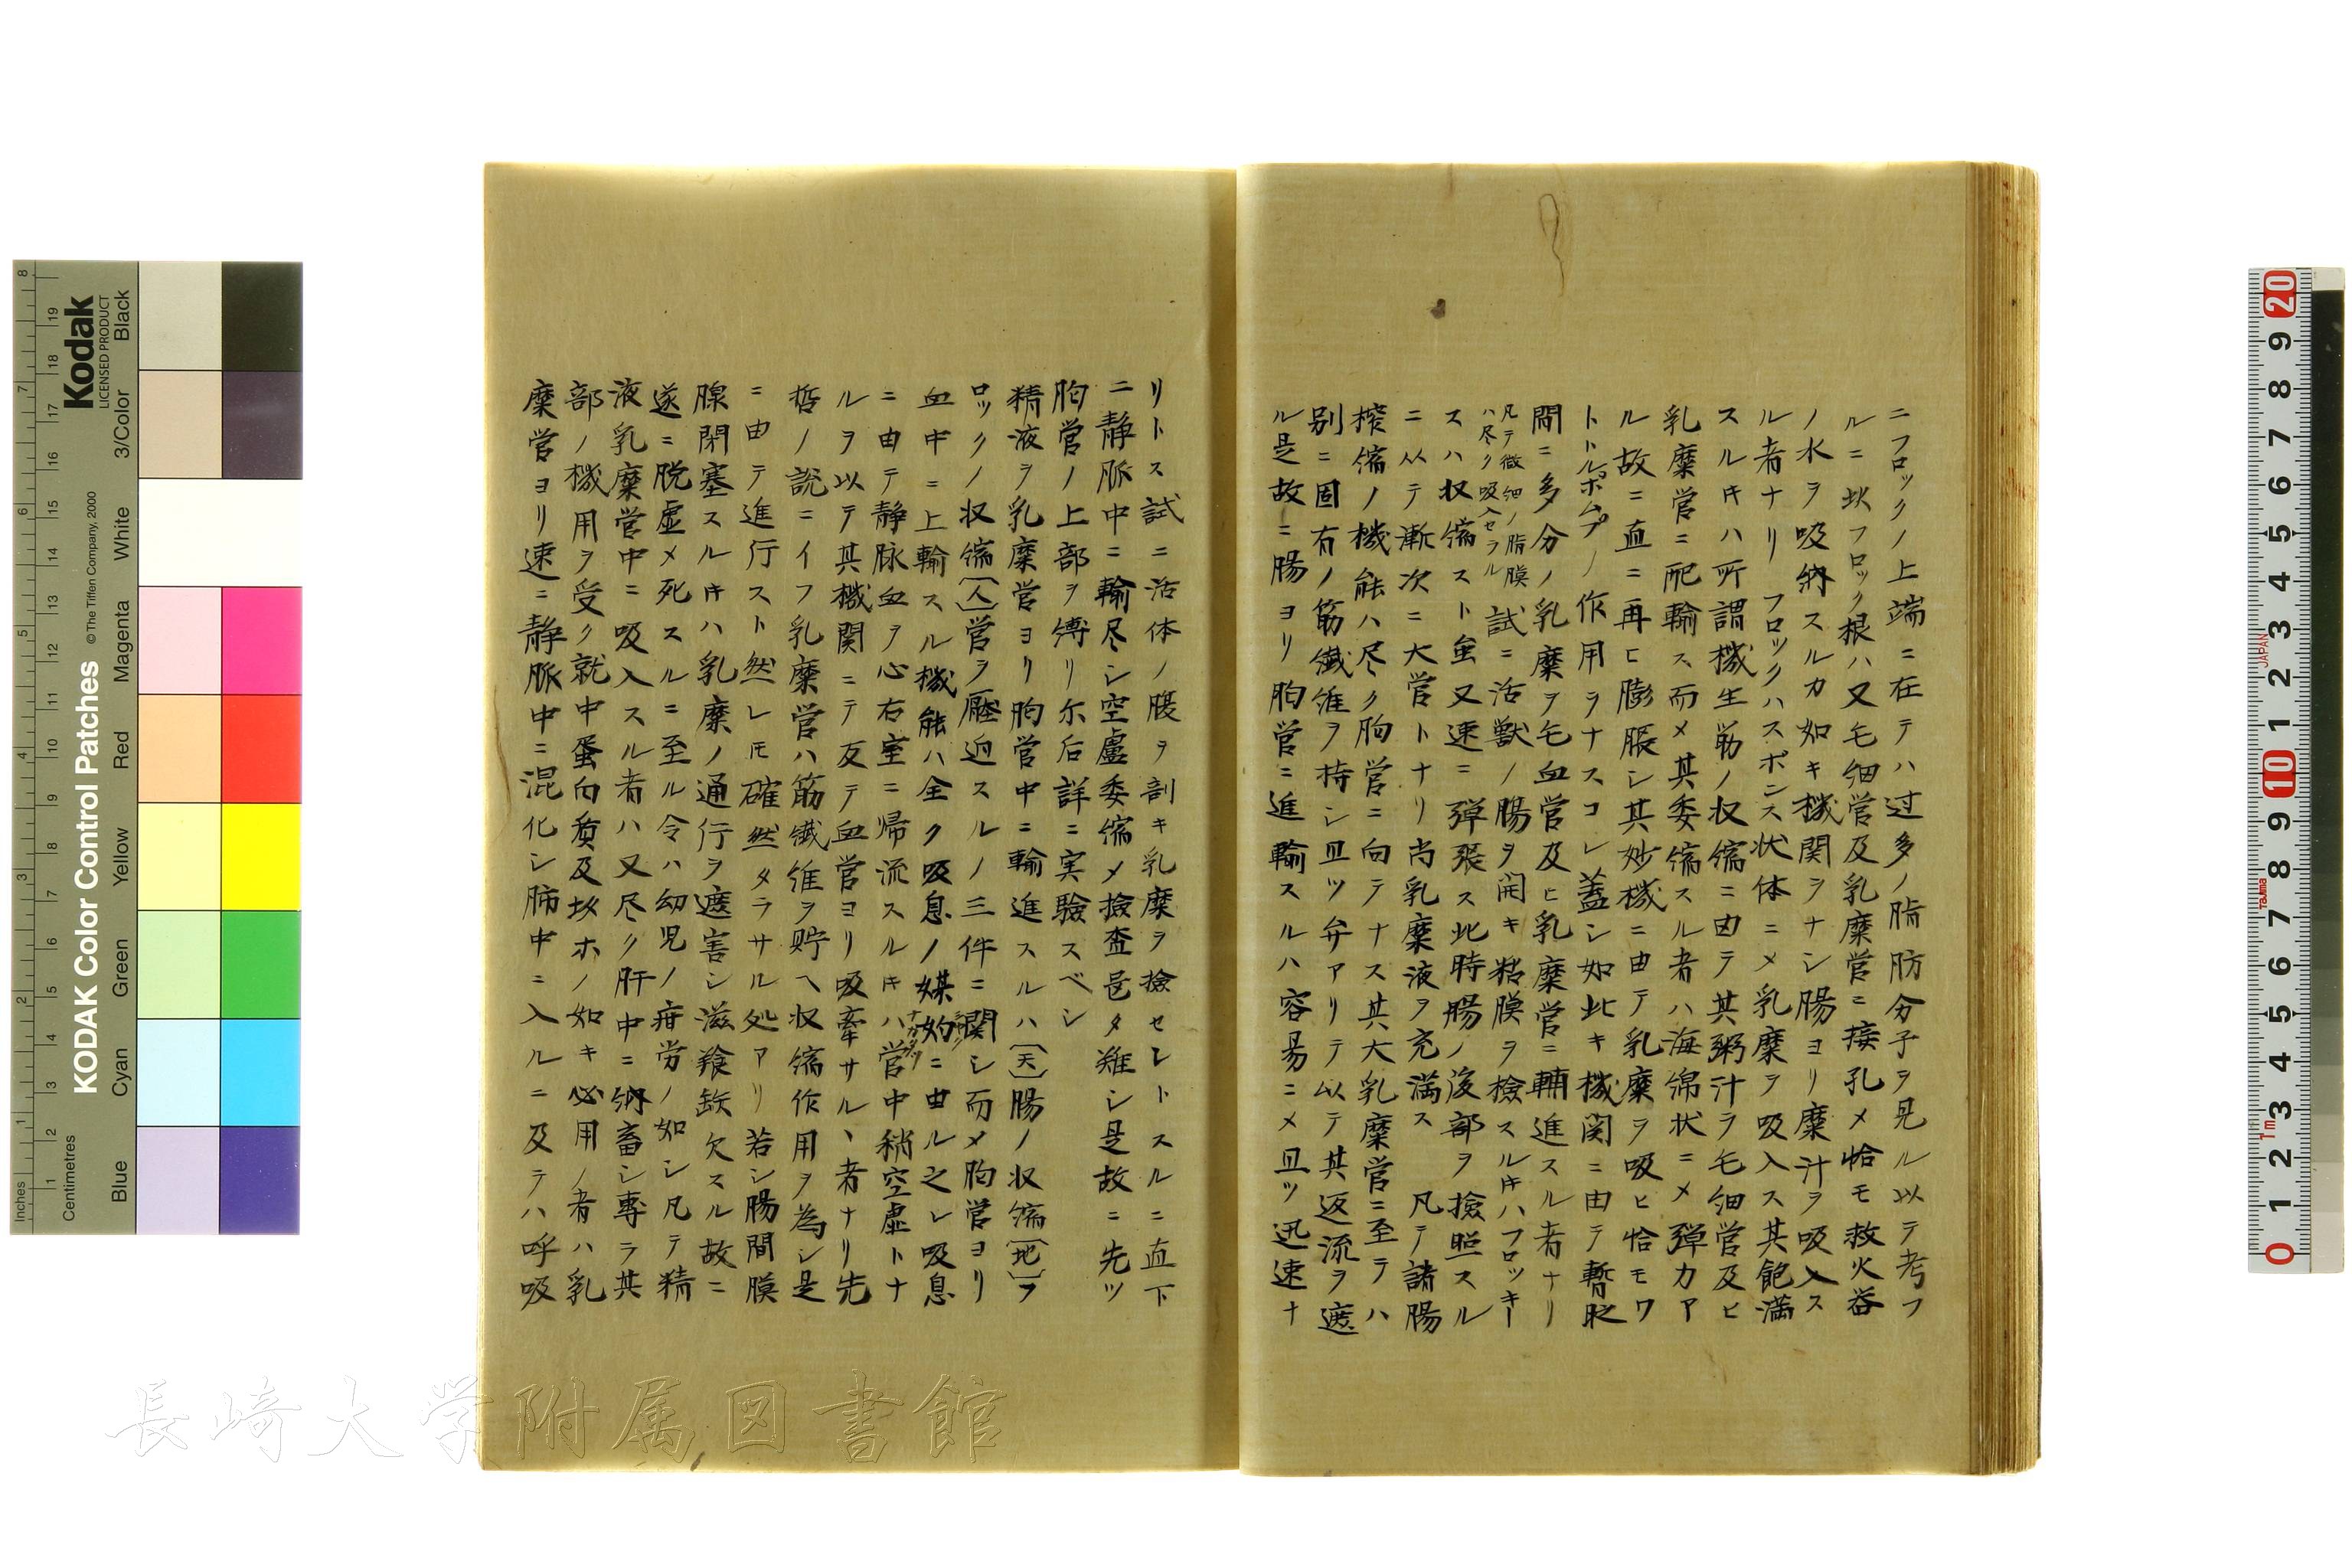 ニフロックノ上端ニ在テハ过多ノ脂肪分子ヲ見ル以テ考フ
ルニ此フロック根ハ又毛細管及乳糜管ニ接孔メ恰モ救火器
ノ水ヲ吸納スルカ如キ機関ヲナシ腸ヨリ糜汁ヲ吸入ス
ル者ナリ フロックハスポンス状体ニメ乳糜ヲ吸入ス其飽満
スルキハ所謂機生筋ノ収縮ニ因テ其粥汁ヲ毛細管及ヒ
乳糜管ニ配輸ス而メ其委縮スル者ハ海綿状ニメ弾力ア
ル故ニ直ニ再ヒ膨脹シ其妙機ニ由テ乳糜ヲ吸ヒ恰モワ
トトルポムプノ作用ヲナスコレ蓋シ如此キ機関ニ由テ暫時
間ニ多分ノ乳糜ヲ毛血管及ヒ乳糜管ニ輔進スル者ナリ
凡テ微細ノ脂膜
ハ尽ク吸入セラル
試ニ活獣ノ腸ヲ開キ粘膜ヲ検スルキハフロッキー
スハ収縮スト虽又速ニ弾張ス此時腸ノ後部ヲ撿照スル
ニ从テ漸次ニ大管トナリ尚乳糜液ヲ充満ス 凡テ諸腸
搾縮ノ機能ハ尽ク胸管ニ向テナス其大乳糜管ニ至テハ
別ニ固有ノ筋繊維ヲ持シ且ツ弁アリテ以テ其返流ヲ遮
ル是故ニ腸ヨリ胸管ニ進輸スルハ容易ニメ且ツ迅速ナ
リトス試ニ活体ノ腹ヲ剖キ乳糜ヲ撿セントスルニ直下
ニ静脈中ニ輸尽シ空盧委縮メ撿査邑タ難シ是故ニ先ツ
胸管ノ上部ヲ縛リ尓后詳ニ実驗スベシ
精液ヲ乳糜管ヨリ胸管中ニ輸進スルハ〔天〕腸ノ収縮〔地〕フ
ロックノ収縮〔人〕管ヲ壓迫スルノ三件ニ関シ而メ胸管ヨリ
血中ニ上輸スル機能ハ全ク吸息ノ媒妁ニ由ル之レ吸息
ニ由テ静脉血ヲ心右室ニ帰流スルキハ管中稍空虚トナ
ルヲ以テ其機関ニテ反テ血管ヨリ吸牽サルヽ者ナリ先
哲ノ説ニイフ乳糜管ハ筋繊維ヲ貯ヘ収縮作用ヲ為シ是
ニ由テ進行スト然レモ確然タラサル処アリ若シ腸間膜
腺閉塞スルキハ乳糜ノ通行ヲ遮害シ滋飱缺欠スル故ニ
遂ニ脱虚メ死スルニ至ル令ハ幼児ノ疳労ノ如シ凡テ精
液乳糜管中ニ吸入スル者ハ又尽ク肝中ニ納畜シ専ラ其
部ノ機用ヲ受ク就中蛋白质及坆ホノ如キ必用ノ者ハ乳
糜管ヨリ速ニ静脈中ニ混化シ肺中ニ入ルニ及テハ呼吸
長崎大学附属図書館
Kodak
LICENSED PRODUCT
KODAK Color Control Patches
© The Tiffen Company, 2000
Inches
Centimetres
Blue
Cyan
Green
Yellow
Red
Magenta
White
3/Color
Black
JAPAN
Tajima